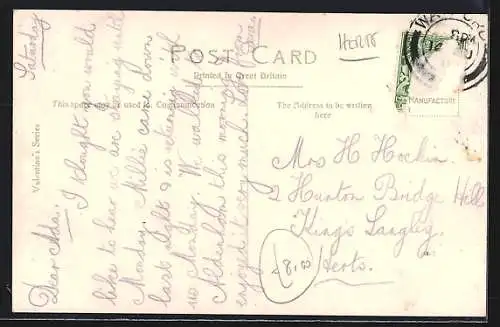 POST CARD
Printed in Great Britain
This space may be used for Communication
The Address to be written here
Valentine's Series
MANUFACTURE
WATFORD
HERTS
Saturday
Dear Ada.
I thought you would
like to hear we are staying until
Monday. Millie came down
last night & is returning with
us Monday. We walked to
Aldenham this morning
enjoyed it very much. Love from
Mrs H Hockin.
2 Hunton Bridge Hill
Kings Langley
Herts.
8.00